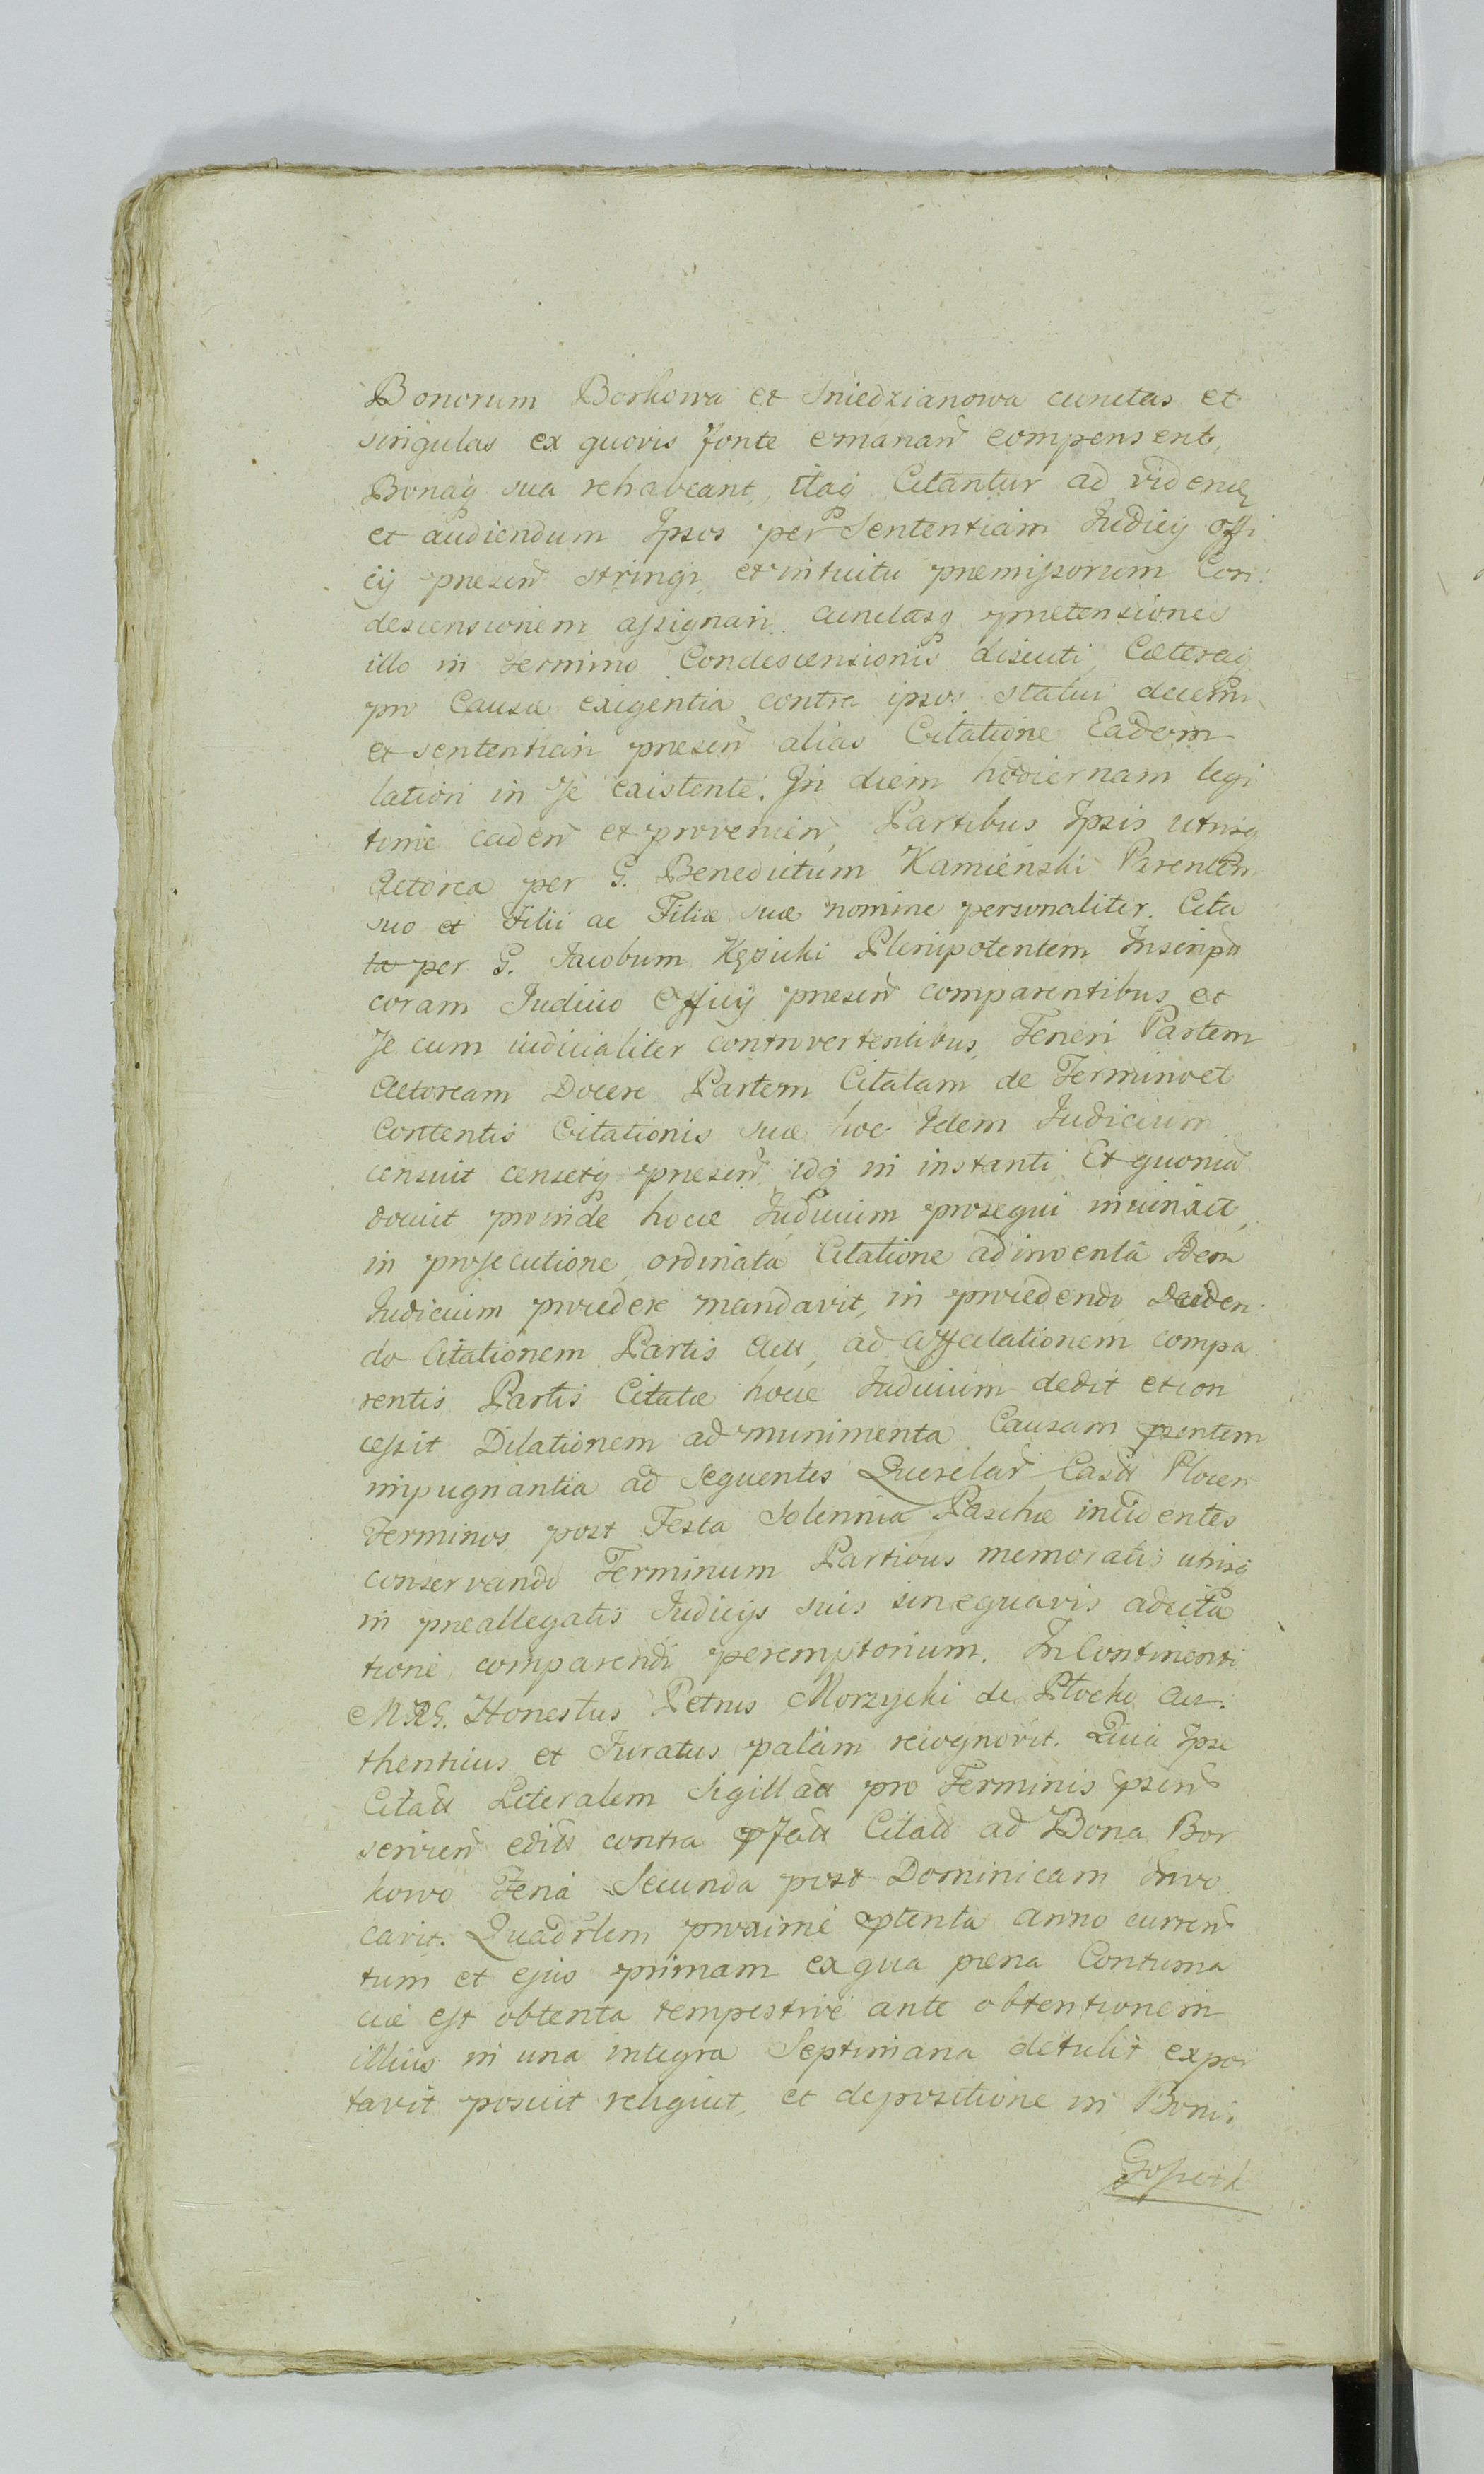 Bonorum Borkowa et Sniedzianowa cunctas et
singulas ex quovis fonte emanañ compensent,
Bonaq sua rehabeant, itaq Citantur ad videnđ
et audiendum Ipsos per Sententiam Judicij offi
cij presenñ stringi, et intuitu premissorum Con:
descensionem assignari cunctasq pretensiones
illo in Termino Condescensionis discuti, Cæteraq
pro Causæ exigentia contra ipsos statui decerni
et sententiari presenñ alias Citatione Eadem
latiori in se existente. In diem hodiernam legi
time cadenñ et provenienñ, Partibus Ipsis utrisq
Actorea per G. Benedictum Kamieński Parentem
suo et Filii ac Filiæ suæ nomine personaliter. Cita
ta per G. Jacobum Kęsicki Plenipotentem Inscripõ
coram Judicio Officij presenñ comparentibus et
se cum iudicialiter controvertentibus, Teneri Partem
Actoream Docere Partem Citatam de Termino et
Contentis Citationis suæ hoc Idem Judicium
censuit censetq presenñ idq in instanti. Et quoniã
docuit proinde hocce Judicium prosequi iniunxit,
in prosecutione, ordinata Citatione adinventã Idem
Judicium procedere mandavit, in procedendo Deciden
do Citationem Partis Actt, ad affectationem compa
rentis Partis Citatæ hocce Judicium dedit et con
cessit Dilationem ad munimenta Causam psentem
impugnantia ad sequentes Querelarñ Castt Plocenñ
Terminos post Festa Solennia Paschæ incidentes
conservando Terminum Partibus memoratis utrisq
in preallegatis Judicijs suis sine quavis adcita
tione comparendi peremptorium. In Continenti
MRG. Honestus Petrus Morzycki de Plocko Au:
thenticus et Juratus palam recognovit. Quia Ipse
Citatt Literalem Sigillatt pro Terminis psenñ
servienñ editt contra pfatt Citatt ad Bona Bor
kowo Feria Secunda post Dominicam Invo
cavit. Quadrlem proxime ptenta anno currenñ
tum et ejus primam ex qua pæna Contuma
ciæ est obtenta tempestive ante obtentionem
illius in una integra Septimana detulit expor
tavit posuit reliquit, et depositione in Bonis